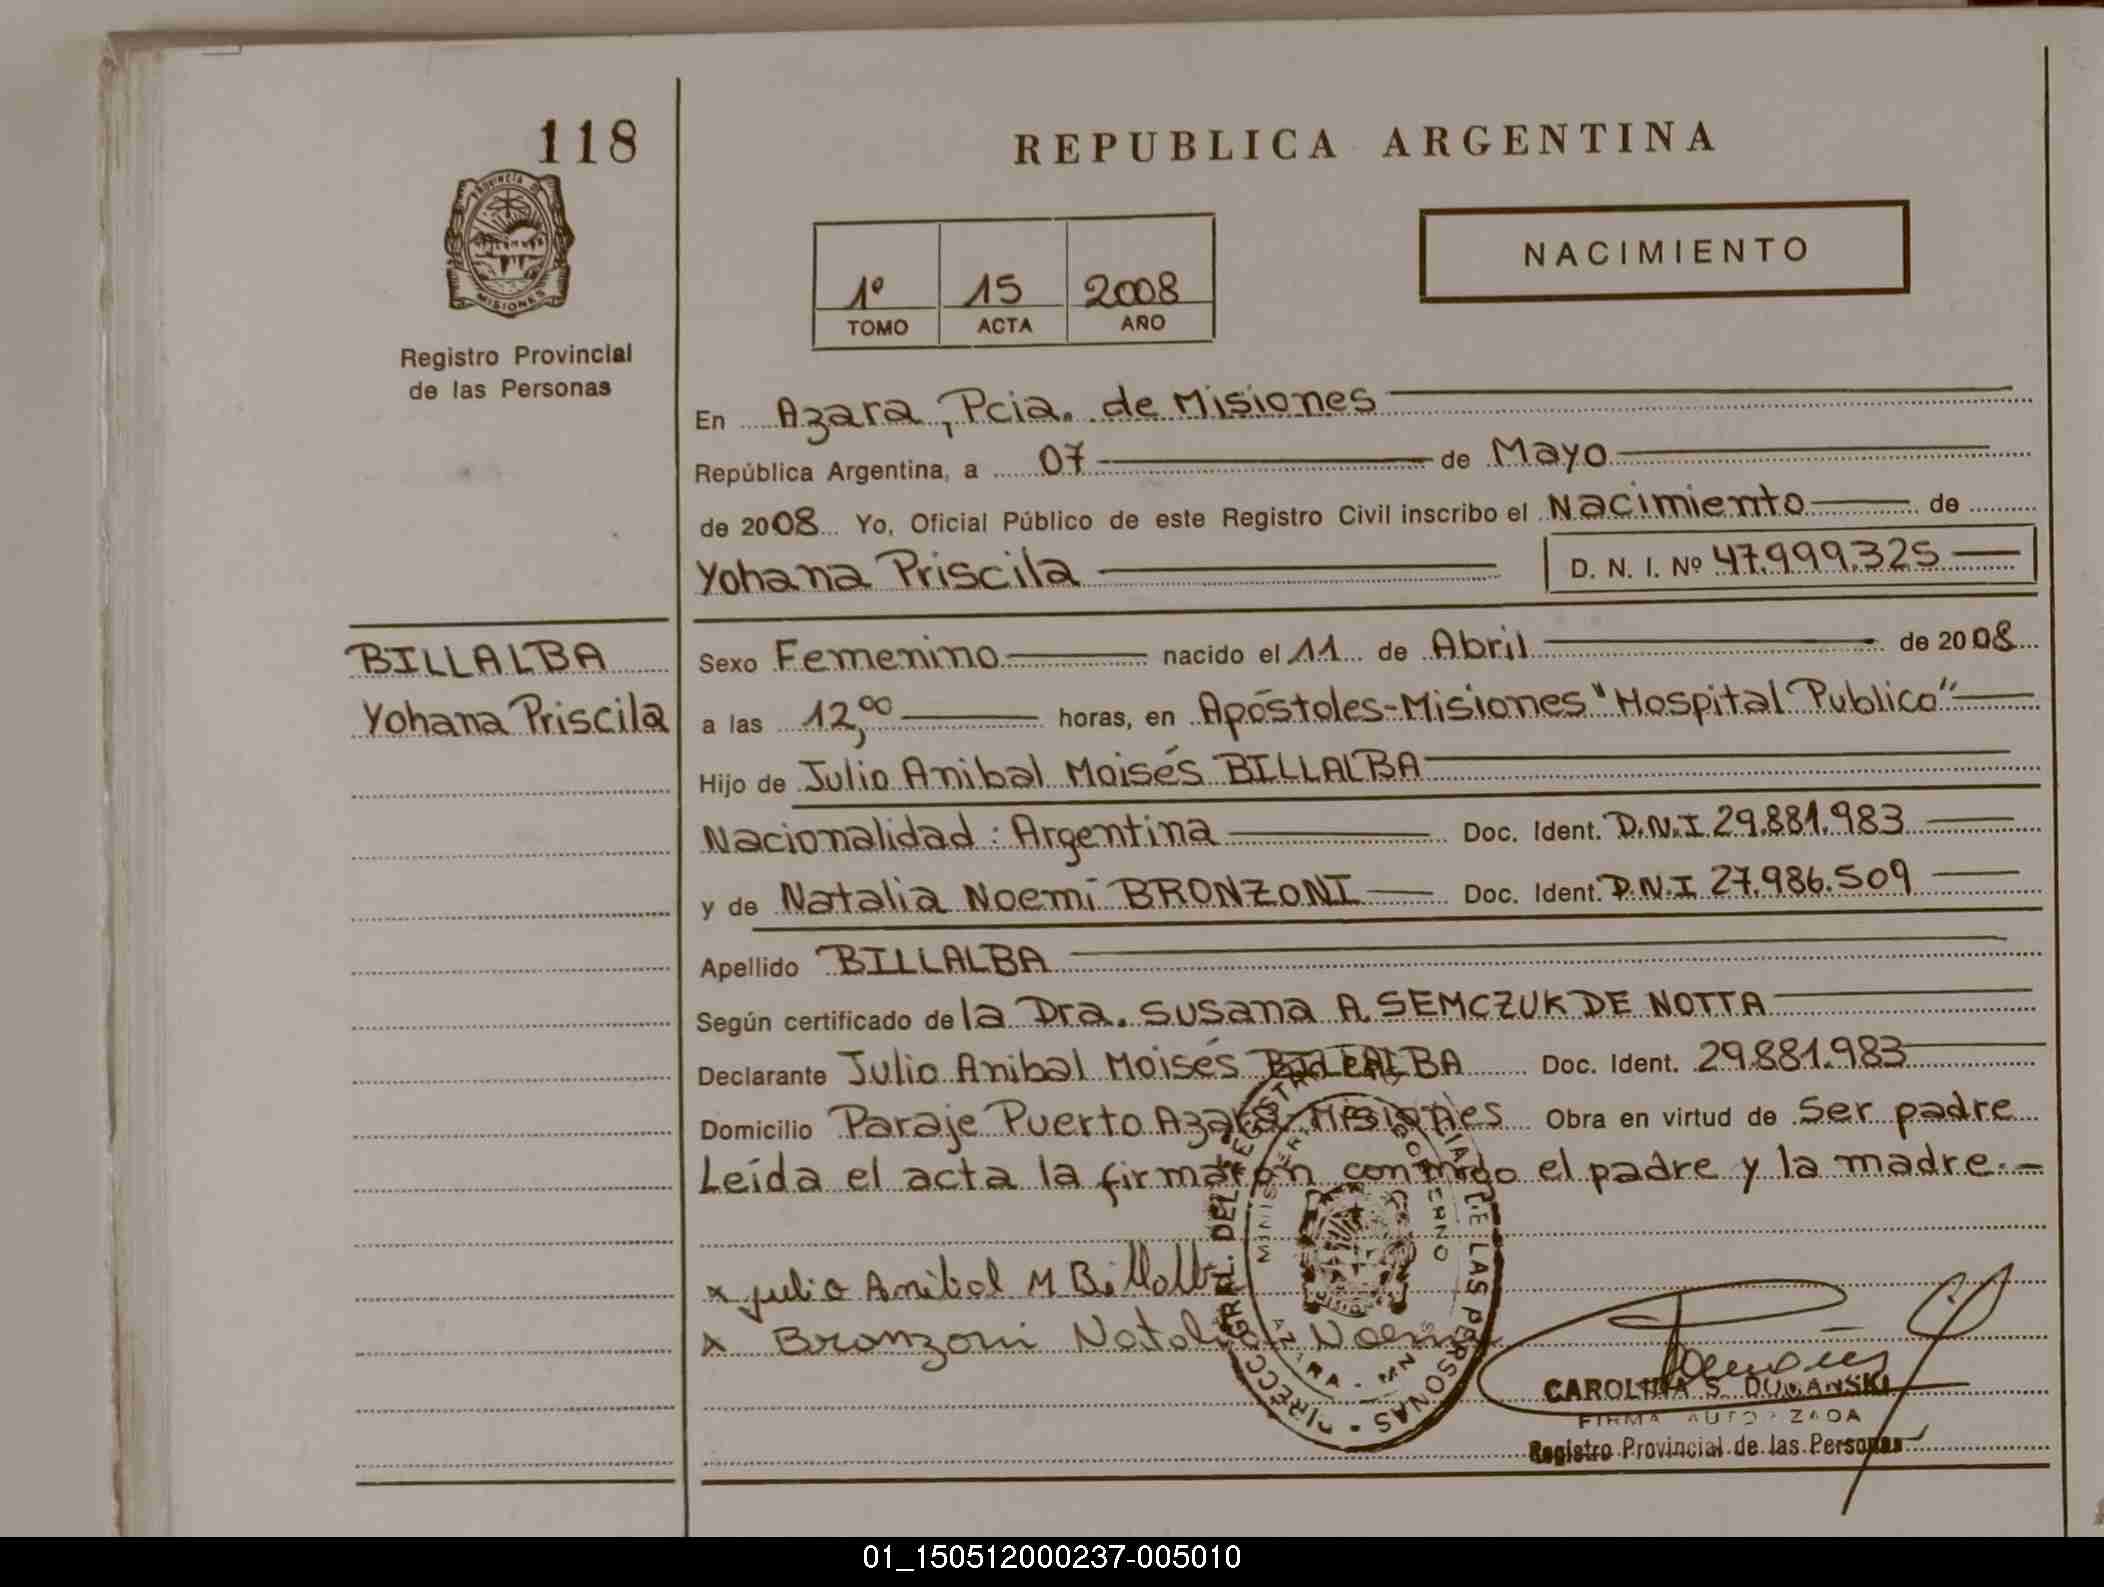 118
PROVINCIA DE
MISIONES
Registro Provincial
de las Personas
BILLALBA
Yohana Priscila
REPUBLICA ARGENTINA
NACIMIENTO
1º 15 2008
TOMO ACTA AÑO
En Azara, Pcia. de Misiones
República Argentina, a 07 de Mayo
de 2008 Yo, Oficial Público de este Registro Civil inscribo el Nacimiento de
Yohana Priscila D. N. I. Nº 47.999.325
Sexo Femenino nacido el 11 de Abril de 2008
a las 12,00 horas, en Apóstoles-Misiones "Hospital Publico"
Hijo de Julio Anibal Moisés BILLALBA
Nacionalidad: Argentina Doc. Ident. D.N.I 29.881.983
y de Natalia Noemí BRONZONI Doc. Ident. D.N.I 27.986.509
Apellido BILLALBA
Según certificado de la Dra. Susana A. SEMCZUK DE NOTTA
Declarante Julio Anibal Moisés BILLALBA Doc. Ident. 29.881.983
Domicilio Paraje Puerto Azara-Misiones Obra en virtud de Ser padre
Leída el acta la firmaron conmigo el padre y la madre.-
x Julio Anibal M Billalba
x Bronzoni Natalia Noemi
DIRECC. GRAL. DEL REGISTRO DE LAS PERSONAS
MINISTERIO GOBIERNO
AZARA - MNES
CAROLINA S. DUCANSKI
FIRMA AUTORIZADA
Registro Provincial de las Personas
01_150512000237-005010